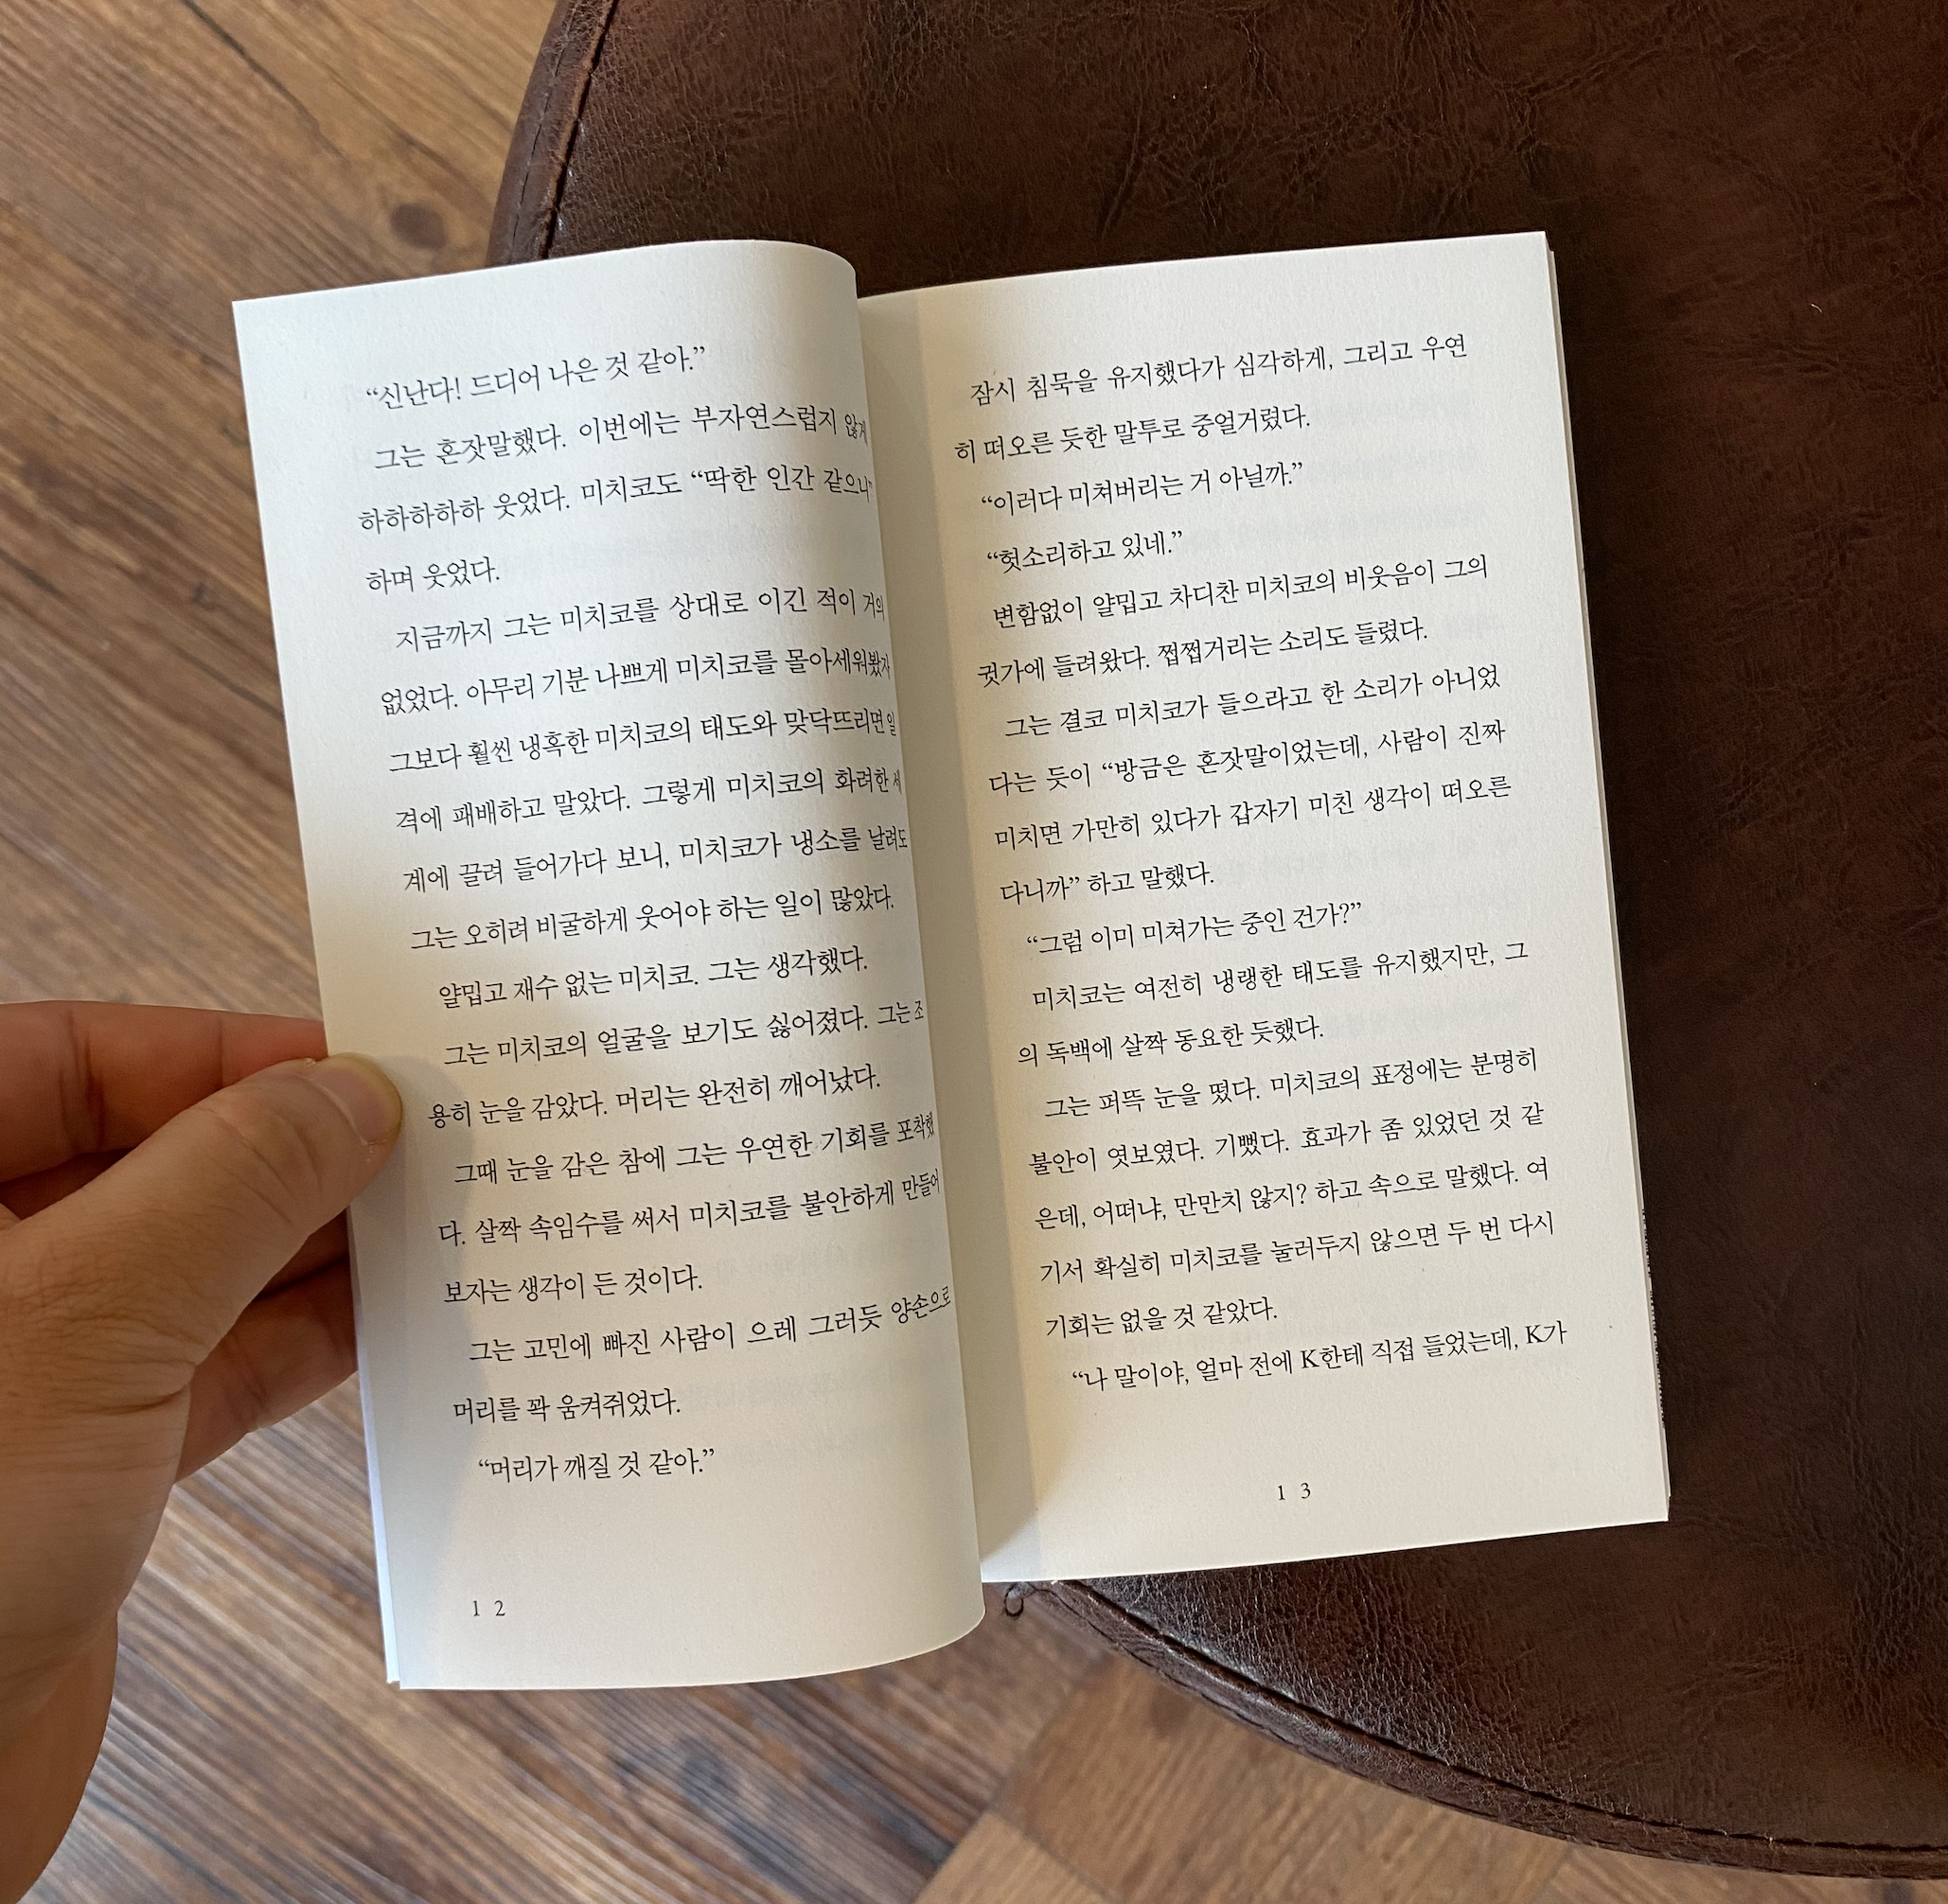 “신난다! 드디어 나은 것 같아.”
그는 혼잣말했다. 이번에는 부자연스럽지 않게
하하하하하 웃었다. 미치코도 “딱한 인간 같으니”
하며 웃었다.
지금까지 그는 미치코를 상대로 이긴 적이 거의
없었다. 아무리 기분 나쁘게 미치코를 몰아세워봤자
그보다 훨씬 냉혹한 미치코의 태도와 맞닥뜨리면 일
격에 패배하고 말았다. 그렇게 미치코의 화려한 세
계에 끌려 들어가다 보니, 미치코가 냉소를 날려도
그는 오히려 비굴하게 웃어야 하는 일이 많았다.
얄밉고 재수 없는 미치코. 그는 생각했다.
그는 미치코의 얼굴을 보기도 싫어졌다. 그는 조
용히 눈을 감았다. 머리는 완전히 깨어났다.
그때 눈을 감은 참에 그는 우연한 기회를 포착했
다. 살짝 속임수를 써서 미치코를 불안하게 만들어
보자는 생각이 든 것이다.
그는 고민에 빠진 사람이 으레 그러듯 양손으로
머리를 꽉 움켜쥐었다.
“머리가 깨질 것 같아.”
12
잠시 침묵을 유지했다가 심각하게, 그리고 우연
히 떠오른 듯한 말투로 중얼거렸다.
“이러다 미쳐버리는 거 아닐까.”
“헛소리하고 있네.”
변함없이 얄밉고 차디찬 미치코의 비웃음이 그의
귓가에 들려왔다. 쩝쩝거리는 소리도 들렸다.
그는 결코 미치코가 들으라고 한 소리가 아니었
다는 듯이 “방금은 혼잣말이었는데, 사람이 진짜
미치면 가만히 있다가 갑자기 미친 생각이 떠오른
다니까” 하고 말했다.
“그럼 이미 미쳐가는 중인 건가?”
미치코는 여전히 냉랭한 태도를 유지했지만, 그
의 독백에 살짝 동요한 듯했다.
그는 퍼뜩 눈을 떴다. 미치코의 표정에는 분명히
불안이 엿보였다. 기뻤다. 효과가 좀 있었던 것 같
은데, 어떠냐, 만만치 않지? 하고 속으로 말했다. 여
기서 확실히 미치코를 눌러두지 않으면 두 번 다시
기회는 없을 것 같았다.
“나 말이야, 얼마 전에 K한테 직접 들었는데, K가
13